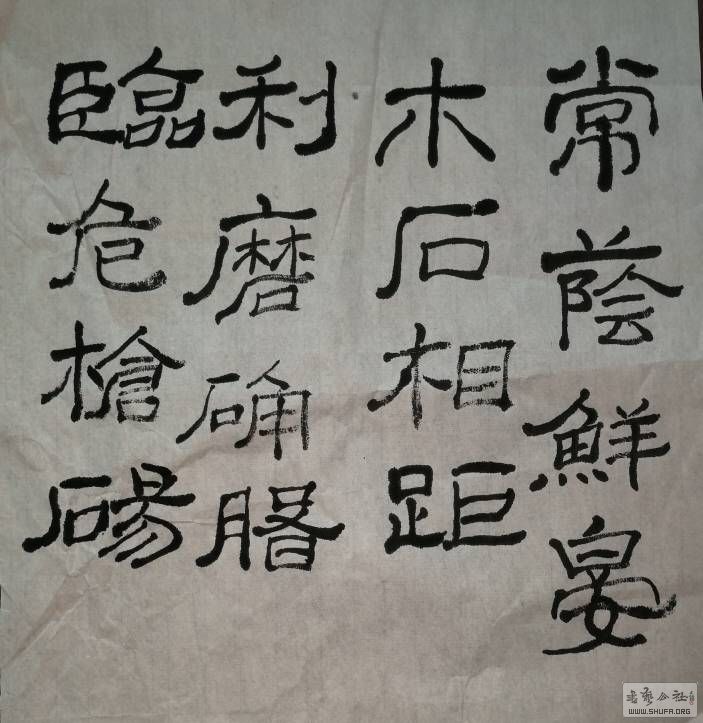 常蔭鮮晏
木石相距
利磨确
臨危槍碭
書藝公社
WWW.SHUFA.ORG